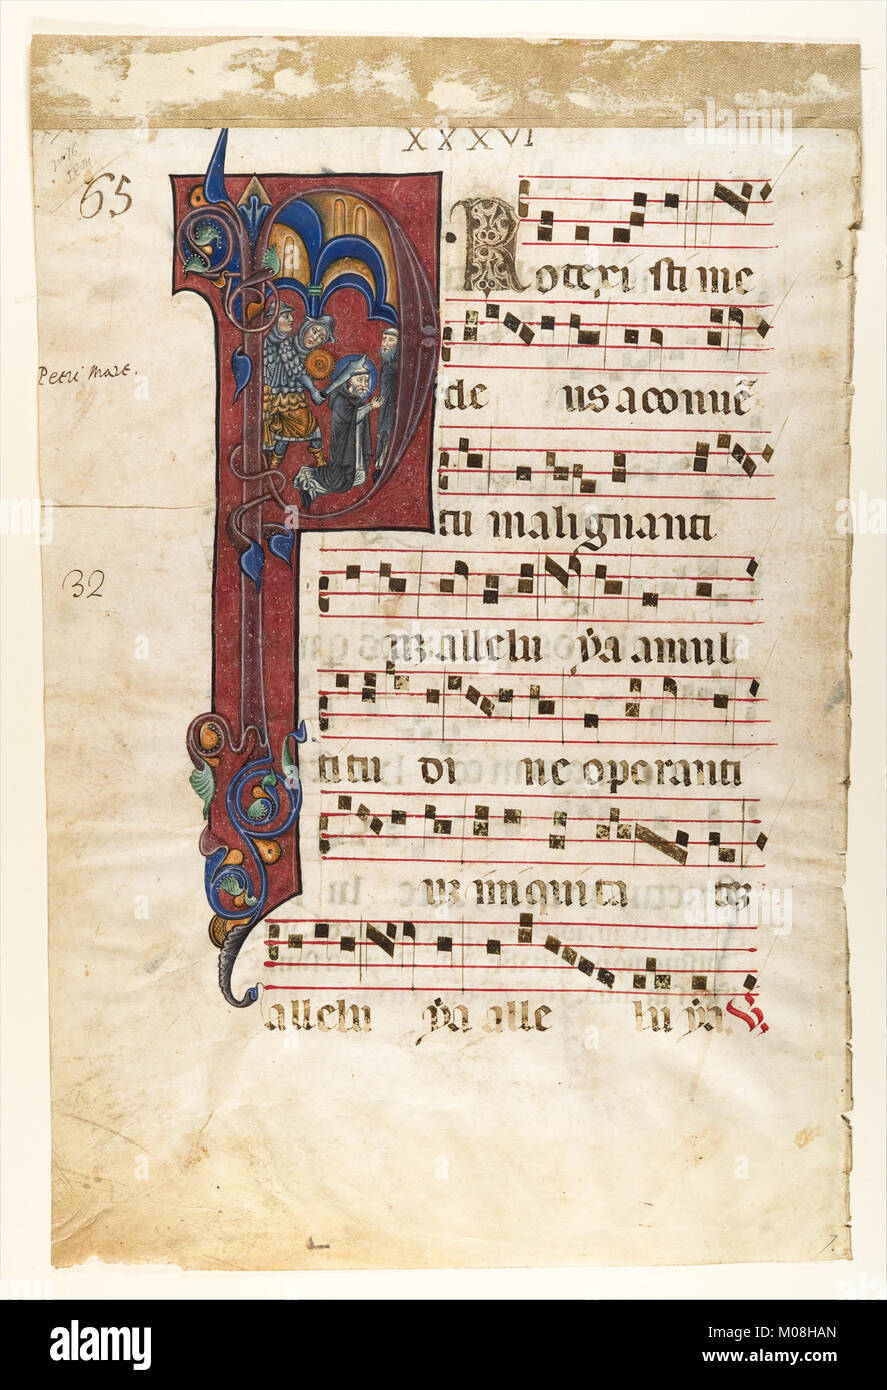 XXXVI
65
Petri Mart.
32
PRotexisti me
deus a conuē
tu malignanti
uz allelu ẏa a mul
titu di ne operanti
uz iniquita tez
allelu ẏa alle lu ẏa. V.
7.
alamy
Image ID: M08HAN
www.alamy.com